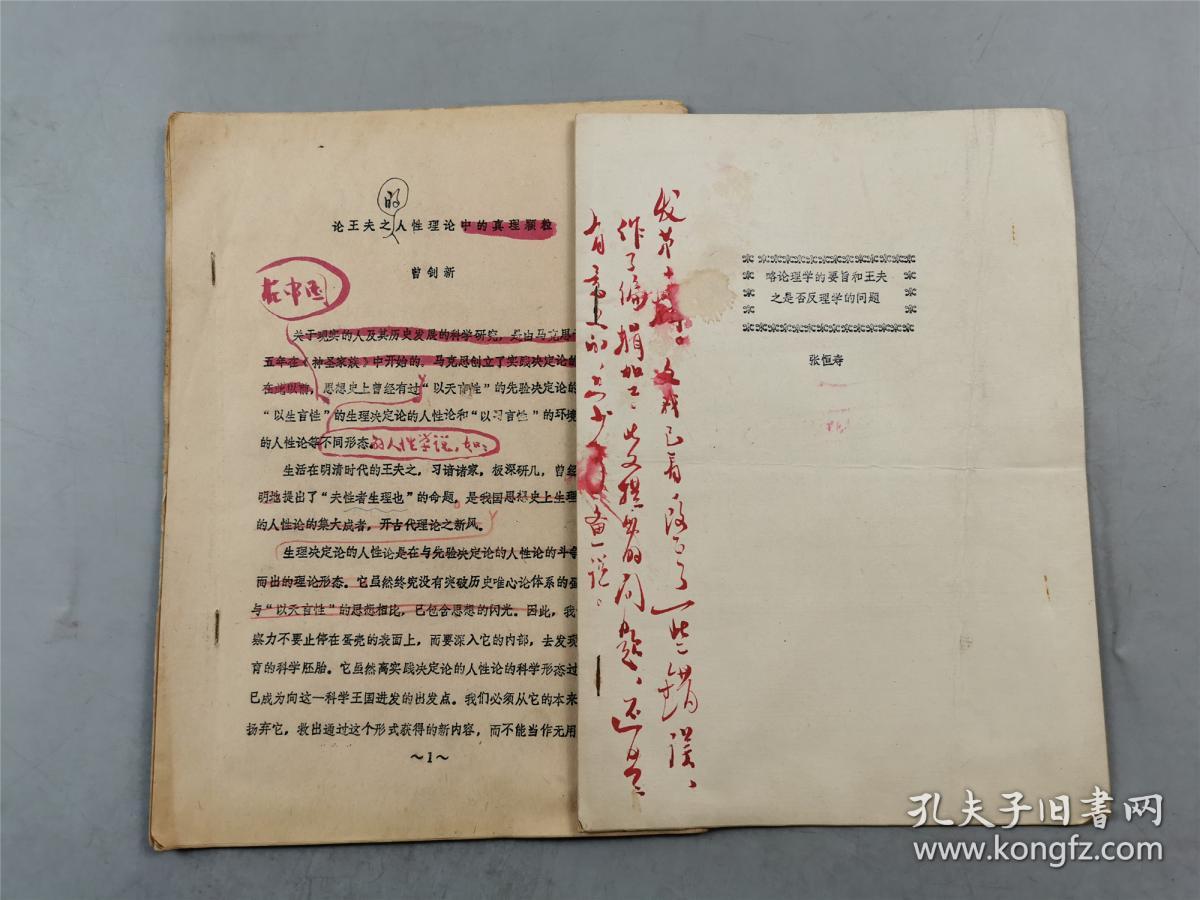 的
论王夫之人性理论中的真理颗粒
曾创新
在中国
关于现实的人及其历史发展的科学研究，是由马克思
五年在《神圣家族》中开始的。马克思创立了实践决定论的
在此以前，思想史上曾经有过“以天言性”的先验决定论的
“以生言性”的生理决定论的人性论和“以习言性”的环境
的人性论等不同形态。的人性学说，如：
生活在明清时代的王夫之，习谙诸家，极深研几，曾经
明地提出了“夫性者生理也”的命题，是我国思想史上生理
的人性论的集大成者，开古代理论之新风。
生理决定论的人性论是在与先验决定论的人性论的斗争
而出的理论形态。它虽然终究没有突破历史唯心论体系的蛋
与“以天言性”的思想相比，已包含思想的闪光。因此，我
察力不要止停在蛋壳的表面上，而要深入它的内部，去发现
育的科学胚胎。它虽然离实践决定论的人性论的科学形态过
已成为向这一科学王国进发的出发点。我们必须从它的本来
扬弃它，救出通过这个形式获得的新内容，而不能当作无用
～1～
发第
文我已看改了一些错误、
作了编辑加工、此文提出的问题、还是
有意义的
备一说。
略论理学的要旨和王夫
之是否反理学的问题
张恒寿
孔夫子旧书网
www.kongfz.com